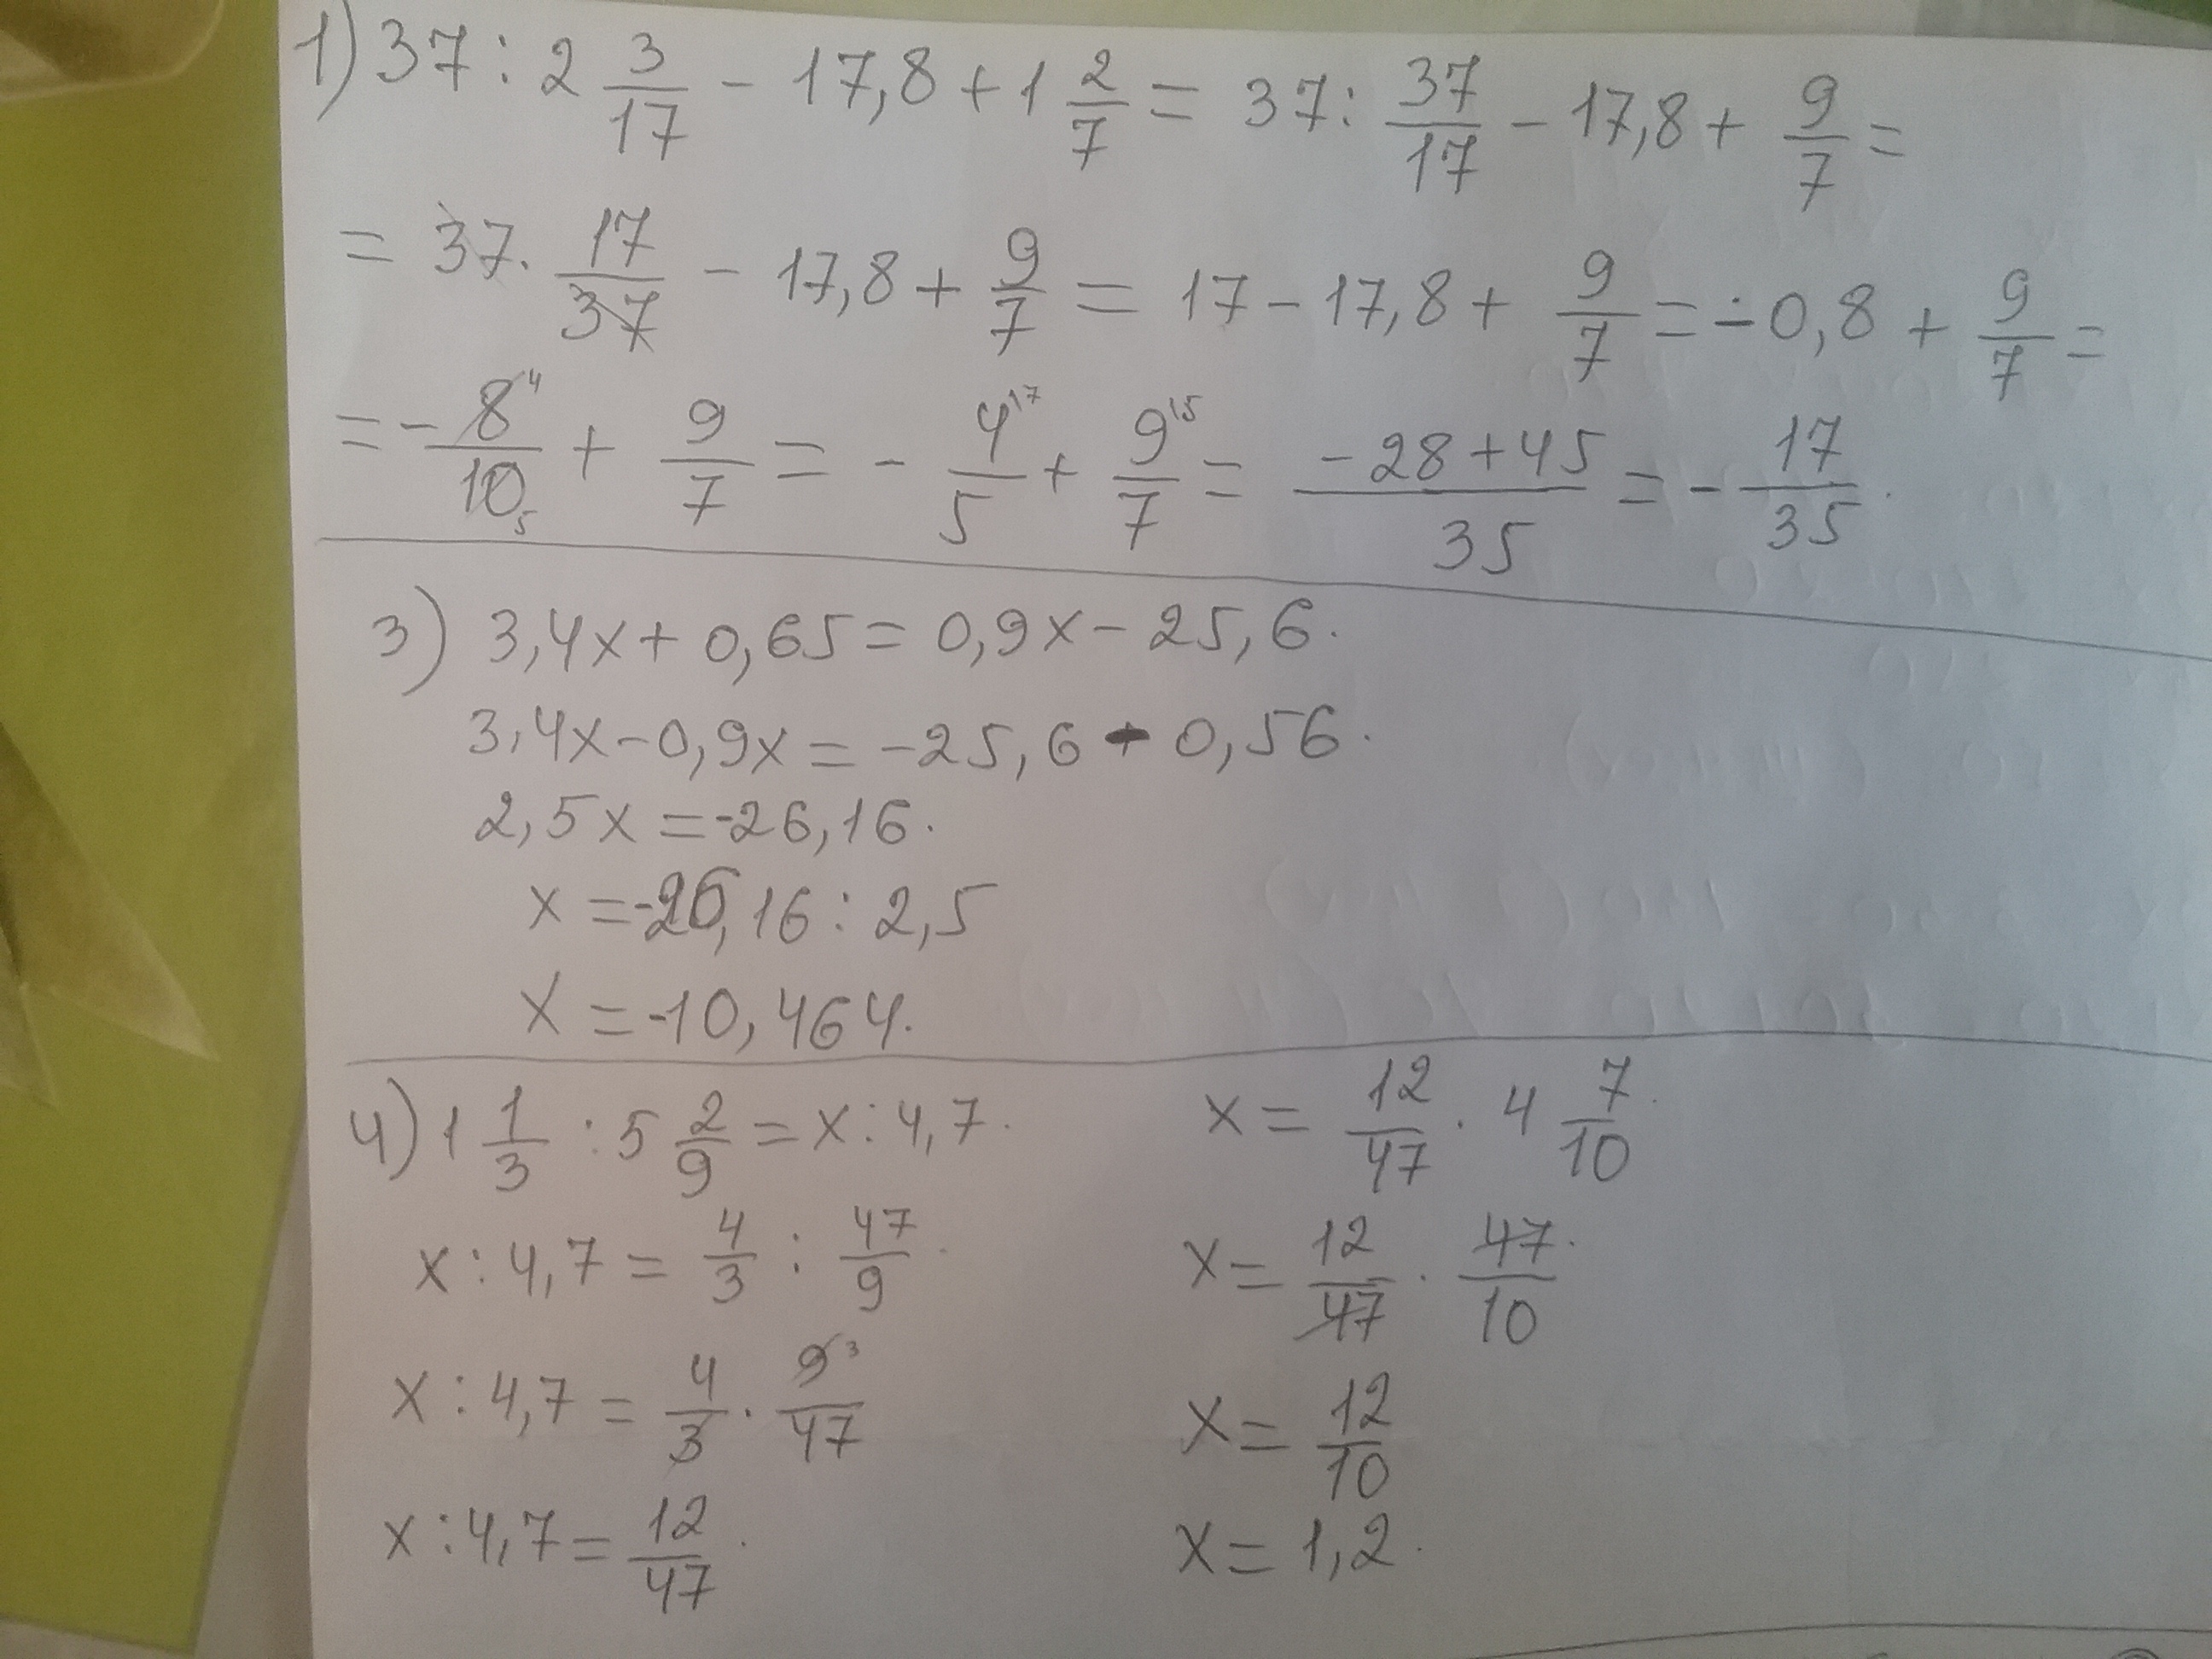 1) 37 : 2 3/17 - 17,8 + 1 2/7 = 37 : 37/17 - 17,8 + 9/7 =
= 37 · 17/37 - 17,8 + 9/7 = 17 - 17,8 + 9/7 = -0,8 + 9/7 =
= - 8⁴/10₅ + 9/7 = - 4^17/5 + 9^15/7 = (-28+45)/35 = - 17/35.
3) 3,4x + 0,65 = 0,9x - 25,6.
3,4x - 0,9x = -25,6 - 0,56.
2,5x = -26,16.
x = -26,16 : 2,5
x = -10,464.
4) 1 1/3 : 5 2/9 = x : 4,7.
x : 4,7 = 4/3 : 47/9.
x : 4,7 = 4/3 · 9³/47
x : 4,7 = 12/47.
x = 12/47 · 4 7/10.
x = 12/47 · 47/10.
x = 12/10
x = 1,2.